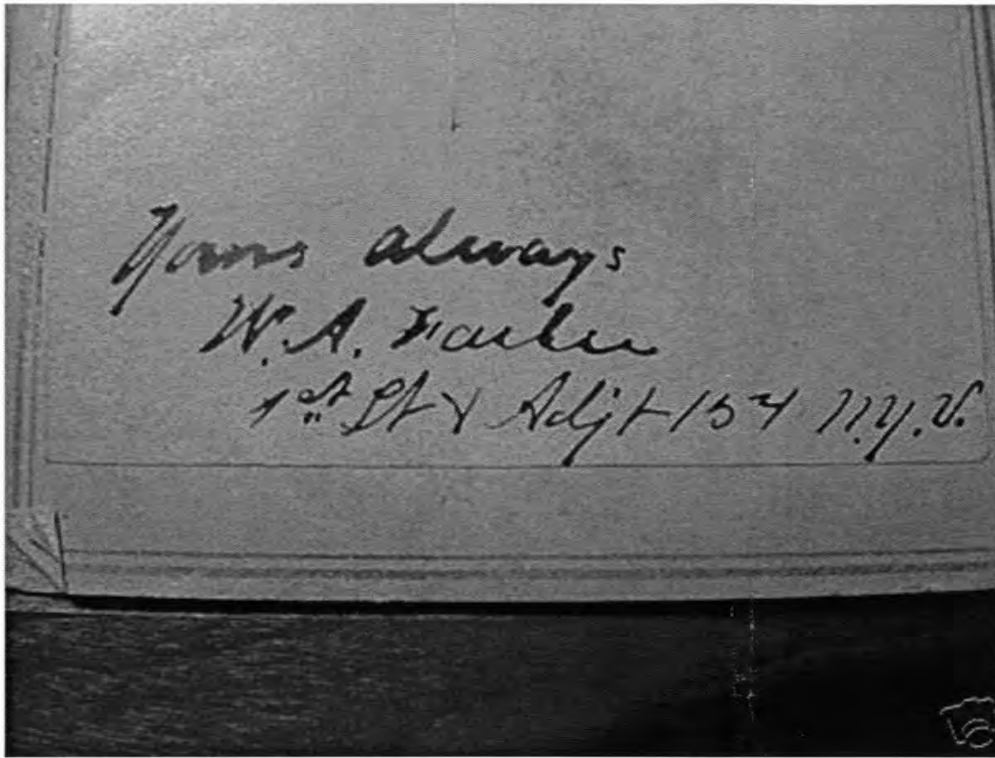 Yours always
W. A. Farlee
1st Lt & Adjt 154 N.Y.V.